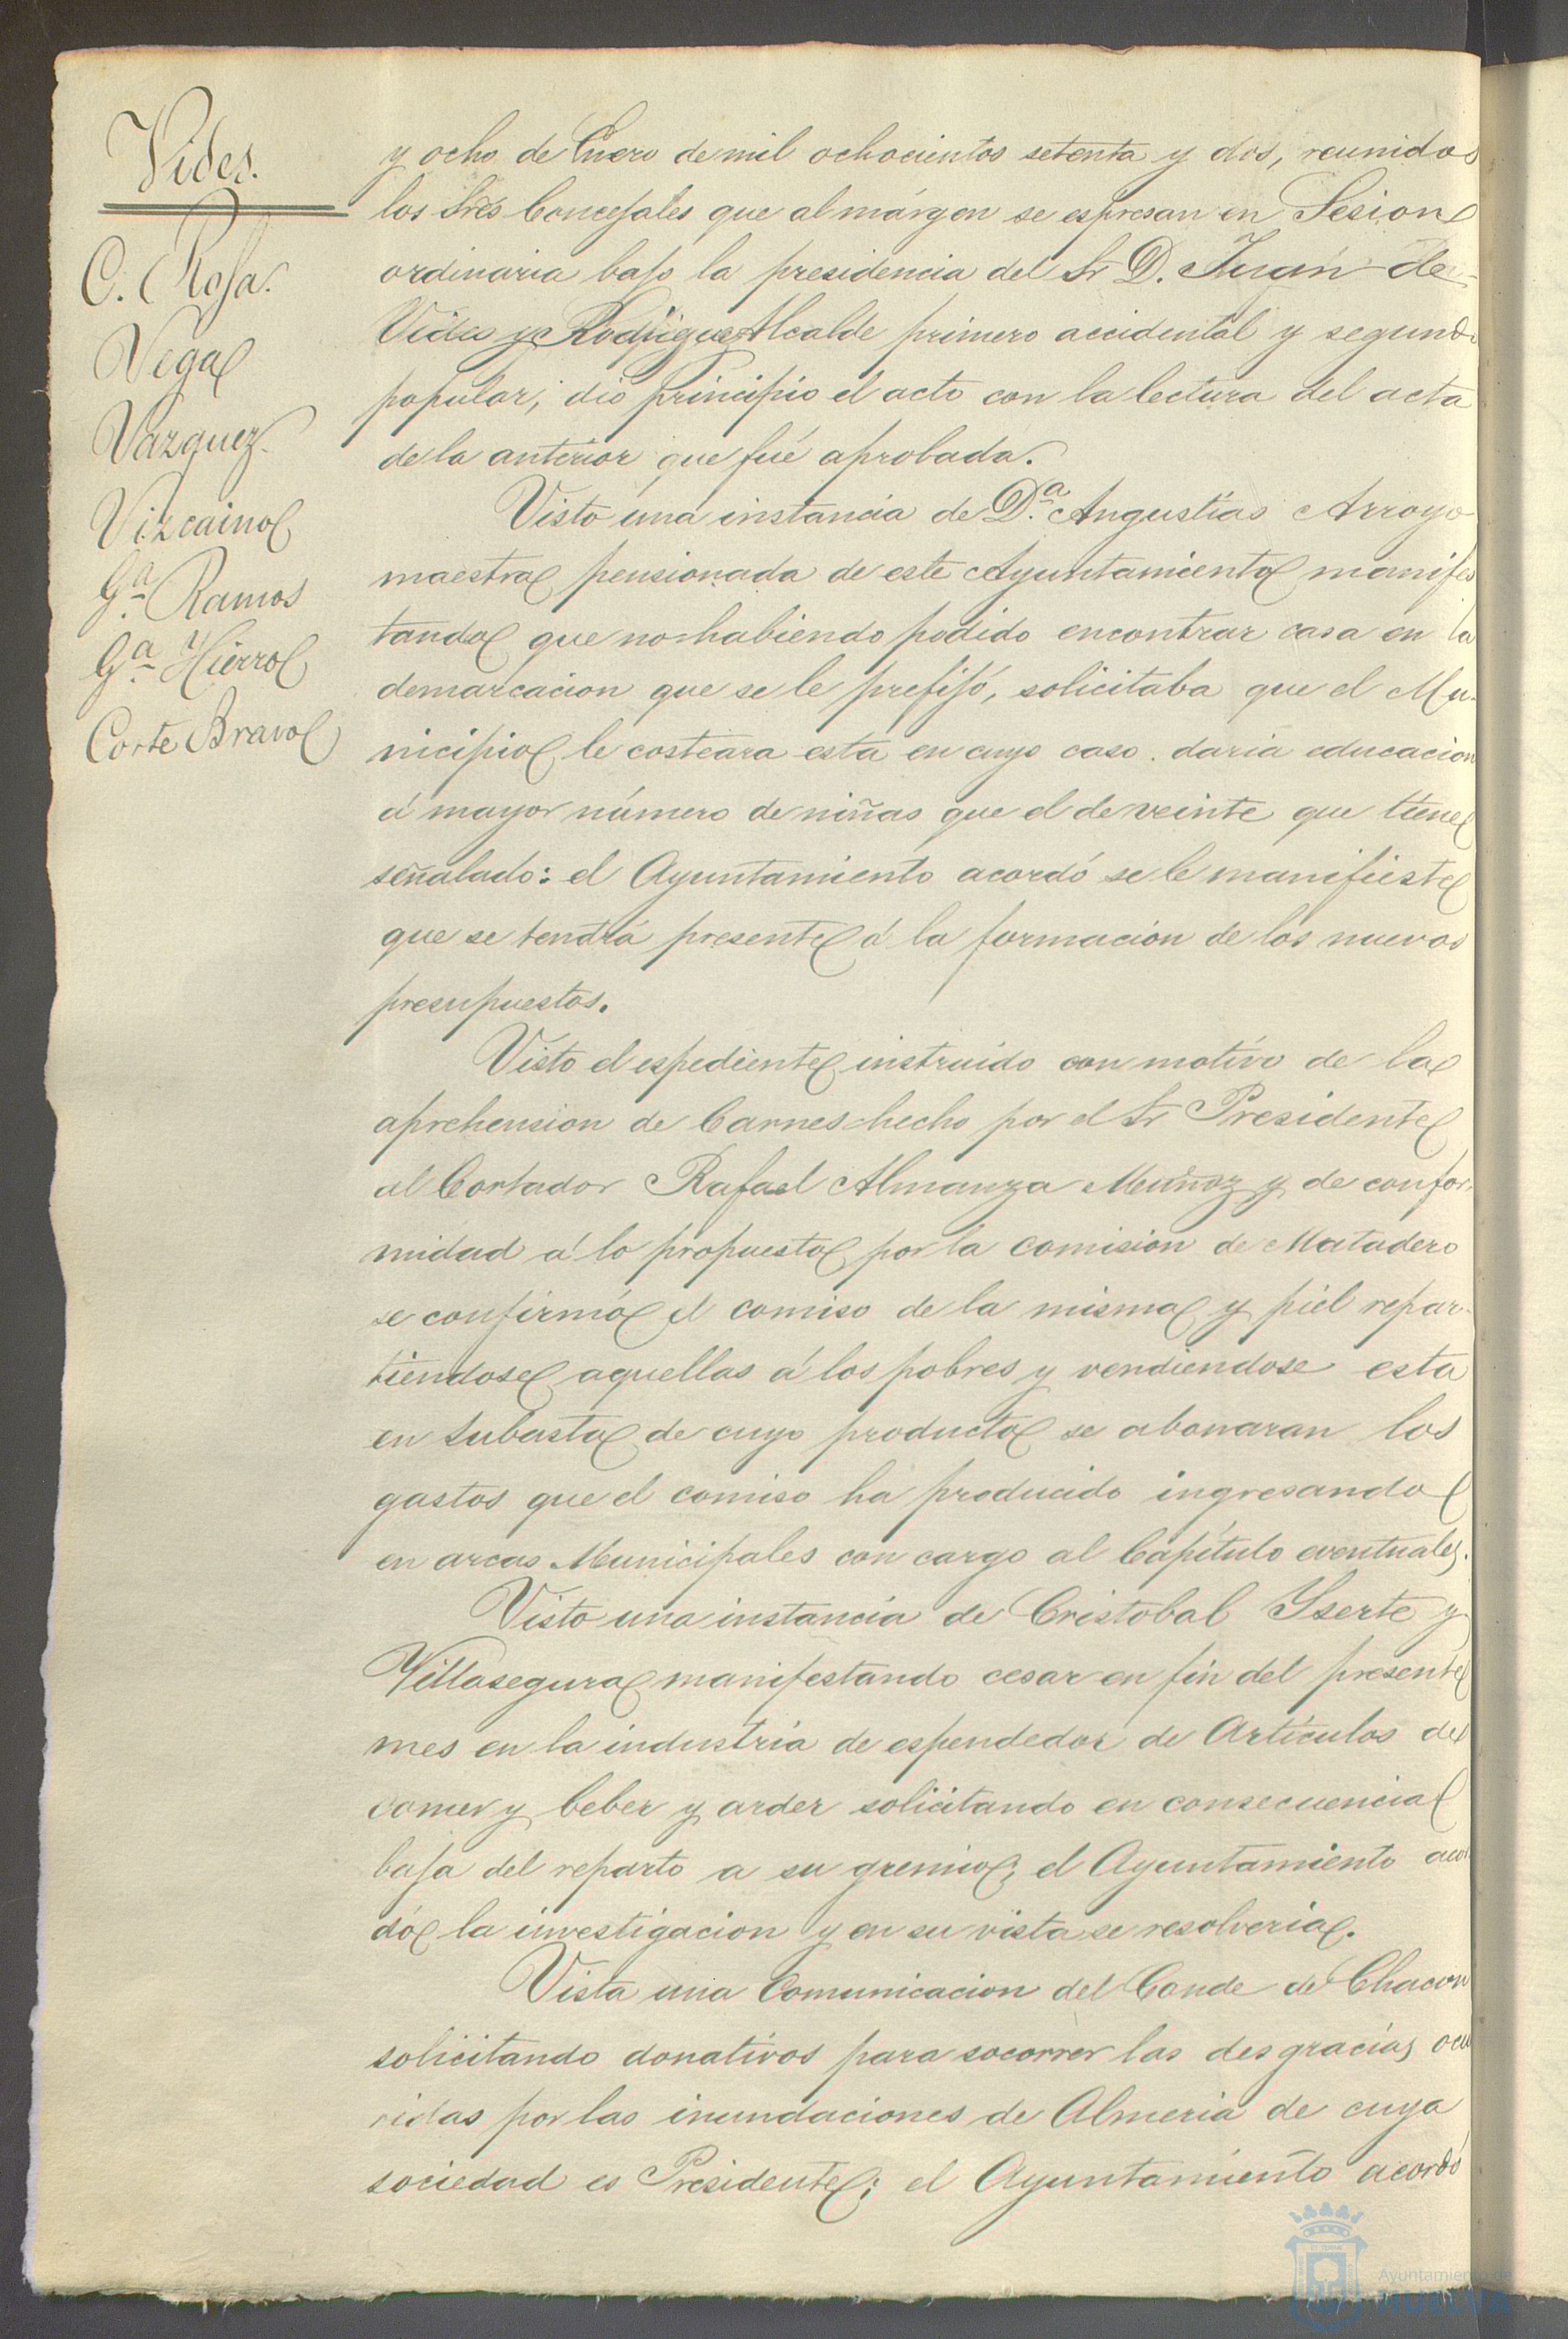 Vides.
C. Rosa.
Vega
Vazquez.
Vizcaino
Gª Ramos
Gª Hierro
Corte Bravo
y ocho de Enero de mil ochocientos setenta y dos, reunidos
los Sres Concejales que al márgen se espresan en Sesion
ordinaria bajo la presidencia del Sr D. Juan de
Vides y Rodriguez Alcalde primero accidental y segundo
popular, dió principio el acto con la lectura del acta
de la anterior que fué aprobada.
Visto una instancia de D.ª Angustias Arroyo
maestra pensionada de este Ayuntamiento manifes
tando que no habiendo podido encontrar casa en la
demarcacion que se le prefijó, solicitaba que el Mu-
nicipio le costeara esta en cuyo caso daria educacion
á mayor número de niñas que el de veinte que tiene
señalado: el Ayuntamiento acordó se le manifieste
que se tendrá presente á la formacion de los nuevos
presupuestos.
Visto el espediente instruido con motivo de la
aprehension de Carnes hecho por el Sr Presidente
al Cortador Rafael Almanza Muñoz y de confor-
midad á lo propuesto por la comision de Matadero
se confirmó el comiso de la misma y piel repar-
tiendose aquellas á los pobres y vendiendose esta
en subasta de cuyo producto se abonaran los
gastos que el comiso ha producido ingresando
en arcas Municipales con cargo al Capítulo eventuales.
Visto una instancia de Cristobal Yserte y
Villasegura manifestando cesar en fin del presente
mes en la industria de espendedor de Artículos de
comer y beber y arder solicitando en consecuencia
baja del reparto a su gremio; el Ayuntamiento acor
dó la investigacion y en su vista se resolveria.
Vista una Comunicacion del Conde de Chacon
solicitando donativos para socorrer las desgracias ocu
ridas por las inundaciones de Almeria de cuya
sociedad es Presidente; el Ayuntamiento acordó
Ayuntamiento de
HUELVA